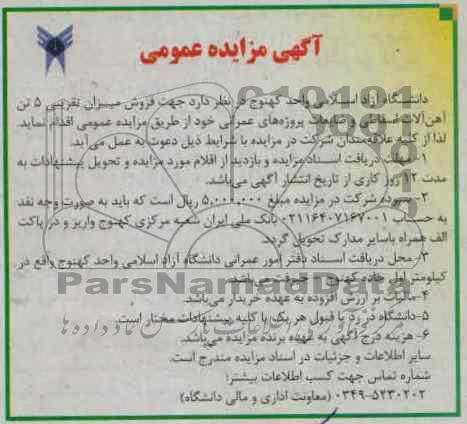 آگهی مزایده عمومی
دانشگاه آزاد اسلامی واحد کهنوج در نظر دارد جهت فروش میزان تقریبی ۵ تن
آهن‌آلات اسقاطی و ضایعات پروژه‌های عمرانی خود از طریق مزایده عمومی اقدام نماید.
لذا از کلیه علاقه‌مندان شرکت در مزایده با شرایط ذیل دعوت به عمل می‌آید.
۱- مهلت دریافت اسناد مزایده و بازدید از اقلام مورد مزایده و تحویل پیشنهادات به
مدت ۱۲ روز کاری از تاریخ انتشار آگهی می‌باشد.
۲- سپرده شرکت در مزایده مبلغ ۵,۰۰۰,۰۰۰ ریال است که باید به صورت وجه نقد
به حساب بانک ملی ایران شعبه مرکزی کهنوج واریز و در پاکت
الف همراه باسایر مدارک تحویل گردد.
۳- محل دریافت اسناد دفتر امور عمرانی دانشگاه آزاد اسلامی واحد کهنوج واقع در
کیلومتر اول جاده کهنوج - جیرفت می‌باشد.
۴- مالیات بر ارزش افزوده به عهده خریدار می‌باشد.
۵- دانشگاه در رد یا قبول هر یک یا کلیه پیشنهادات مختار است.
۶- هزینه درج آگهی به عهده برنده مزایده می‌باشد.
سایر اطلاعات و جزئیات در اسناد مزایده مندرج است.
شماره تماس جهت کسب اطلاعات بیشتر:
۰۳۴۹-۵۲۳۰۲۰۲ (معاونت اداری و مالی دانشگاه)
ParsNamadData